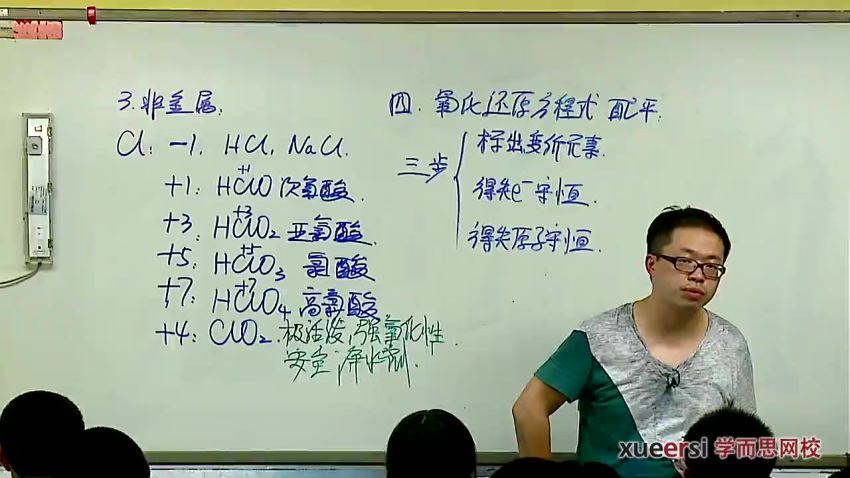 3.非金属.
Cl: -1. HCl. NaCl.
+1: HClO 次氯酸
+1
+3: HClO2 亚氯酸.
+3
+5: HClO3 氯酸
+5
+7: HClO4 高氯酸
+7
+4: ClO2. 极活泼, 强氧化性.
安全净水剂.
四. 氧化还原方程式 配平.
三步
标出变价元素.
得失e-守恒
得失原子守恒.
xueersi 学而思网校